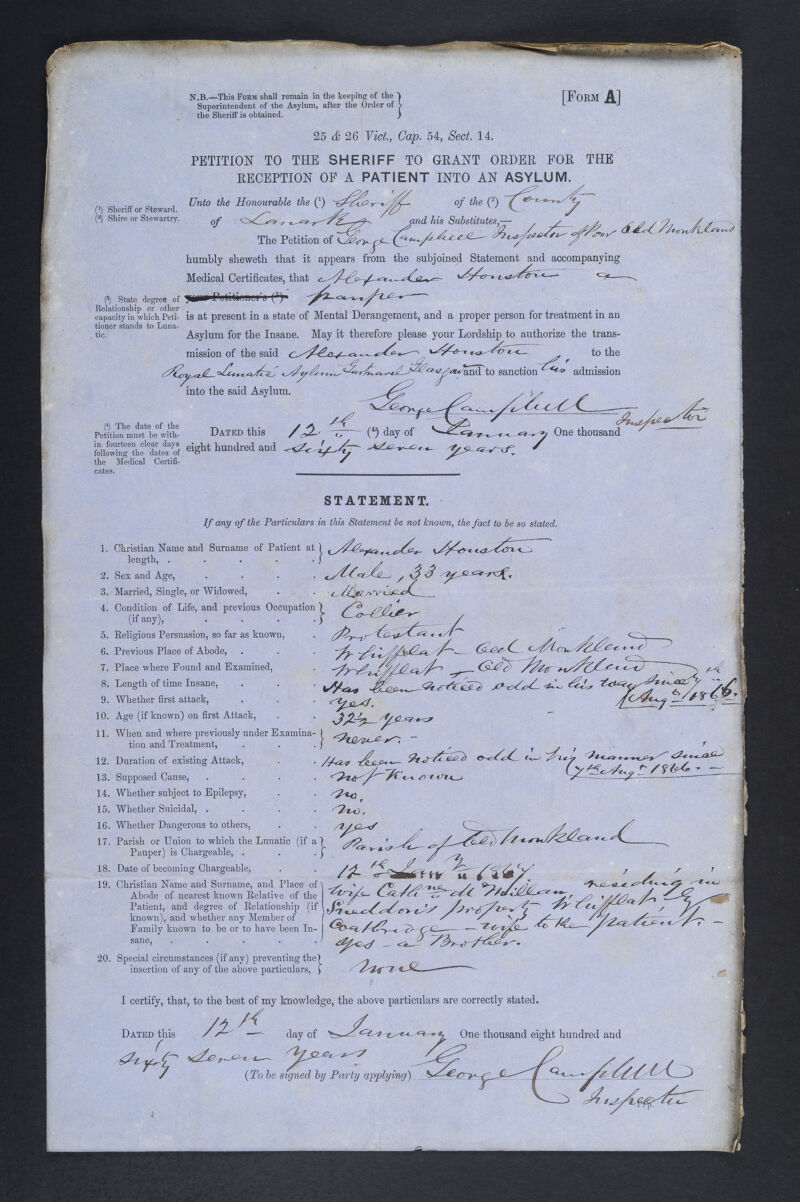 N.B.—This Form shall remain in the keeping of the
Superintendent of the Asylum, after the Order of
the Sheriff is obtained.
[Form A]
25 & 26 Vict., Cap. 54, Sect. 14.
PETITION TO THE SHERIFF TO GRANT ORDER FOR THE
RECEPTION OF A PATIENT INTO AN ASYLUM.
(¹) Sheriff or Steward.
(²) Shire or Stewartry.
Unto the Honourable the (¹) Sheriff of the (²) County
of Lanark and his Substitutes,—
The Petition of George Campbell Inspector of Poor Old Monkland
humbly sheweth that it appears from the subjoined Statement and accompanying
Medical Certificates, that Alexander Houston a
(³) State degree of
Relationship or other
capacity in which Peti-
tioner stands to Luna-
tic.
your Petitioner's (³) pauper
is at present in a state of Mental Derangement, and a proper person for treatment in an
Asylum for the Insane. May it therefore please your Lordship to authorize the trans-
mission of the said Alexander Houston to the
Royal Lunatic Asylum Gartnavel Glasgow and to sanction his admission
into the said Asylum.
George Campbell
Inspector
(⁴) The date of the
Petition must be with-
in fourteen clear days
following the dates of
the Medical Certifi-
cates.
Dated this 12th (⁴) day of January One thousand
eight hundred and sixty seven years.
STATEMENT.
If any of the Particulars in this Statement be not known, the fact to be so stated.
1. Christian Name and Surname of Patient at
length, . . . . . Alexander Houston
2. Sex and Age, . . . . Male, 33 years.
3. Married, Single, or Widowed, . . Married
4. Condition of Life, and previous Occupation
(if any), . . . . Collier
5. Religious Persuasion, so far as known, . Protestant
6. Previous Place of Abode, . . . Whifflat - Old Monkland
7. Place where Found and Examined, . Whifflat - Old Monkland
8. Length of time Insane, . . . Has been noticed odd in his way since 7th
Augt 1866.
9. Whether first attack, . . . yes.
10. Age (if known) on first Attack, . . 32½ years
11. When and where previously under Examina-
tion and Treatment, . . . never. -
12. Duration of existing Attack, . . Has been noticed odd in his manner since
7th Augt 1866. -
13. Supposed Cause, . . . . not known
14. Whether subject to Epilepsy, . . no.
15. Whether Suicidal, . . . . no.
16. Whether Dangerous to others, . . yes
17. Parish or Union to which the Lunatic (if a
Pauper) is Chargeable, . . . Parish of Old Monkland
18. Date of becoming Chargeable, . . 12th Jany 1867.
19. Christian Name and Surname, and Place of
Abode of nearest known Relative of the
Patient, and degree of Relationship (if
known), and whether any Member of
Family known to be or to have been In-
sane, . . . . .
wife Cathne McMillan, residing in
Sneddon's property Whifflat by
Coatbridge - wife to the patient. -
yes - a Brother.
20. Special circumstances (if any) preventing the
insertion of any of the above particulars, none
I certify, that, to the best of my knowledge, the above particulars are correctly stated.
Dated this 12th day of January One thousand eight hundred and
sixty seven years
(To be signed by Party applying) George Campbell
Inspector